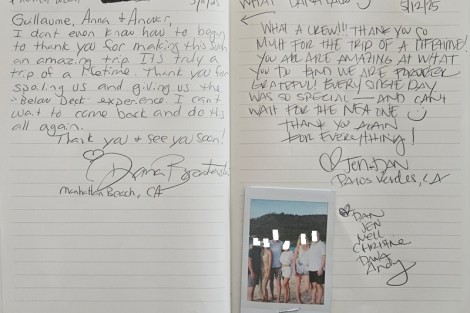 5/12/25
Guillaume, Anna + Anwar,
I dont even know how to begin
to thank you for making this such
an amazing trip. It's truly a
trip of a lifetime. Thank you for
spoiling us and giving us the
"Below Deck" experience. I can't
wait to come back and do this
all again.
Thank you & see you soon!
Dana
Manhattan Beach, CA
WHAT
5/12/25
WHAT A CREW!!! THANK YOU SO
MUCH FOR THE TRIP OF A LIFETIME!
YOU ALL ARE AMAZING AT WHAT
YOU DO AND WE ARE FOREVER
GRATEFUL! EVERY SINGLE DAY
WAS SO SPECIAL — AND CAN'T
WAIT FOR THE NEXT ONE
THANK YOU AGAIN
FOR EVERYTHING!
JEN + DAN
PALOS VERDES, CA
DAN
JEN
NEIL
CHRISTINE
DANA
Andy